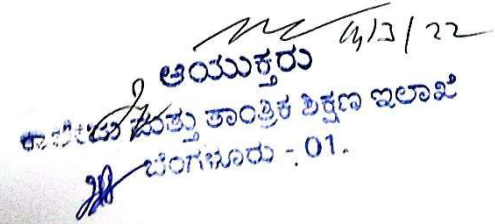 14/3/22
ಆಯುಕ್ತರು
ಕಾಲೇಜು ಮತ್ತು ತಾಂತ್ರಿಕ ಶಿಕ್ಷಣ ಇಲಾಖೆ
ಬೆಂಗಳೂರು - 01.